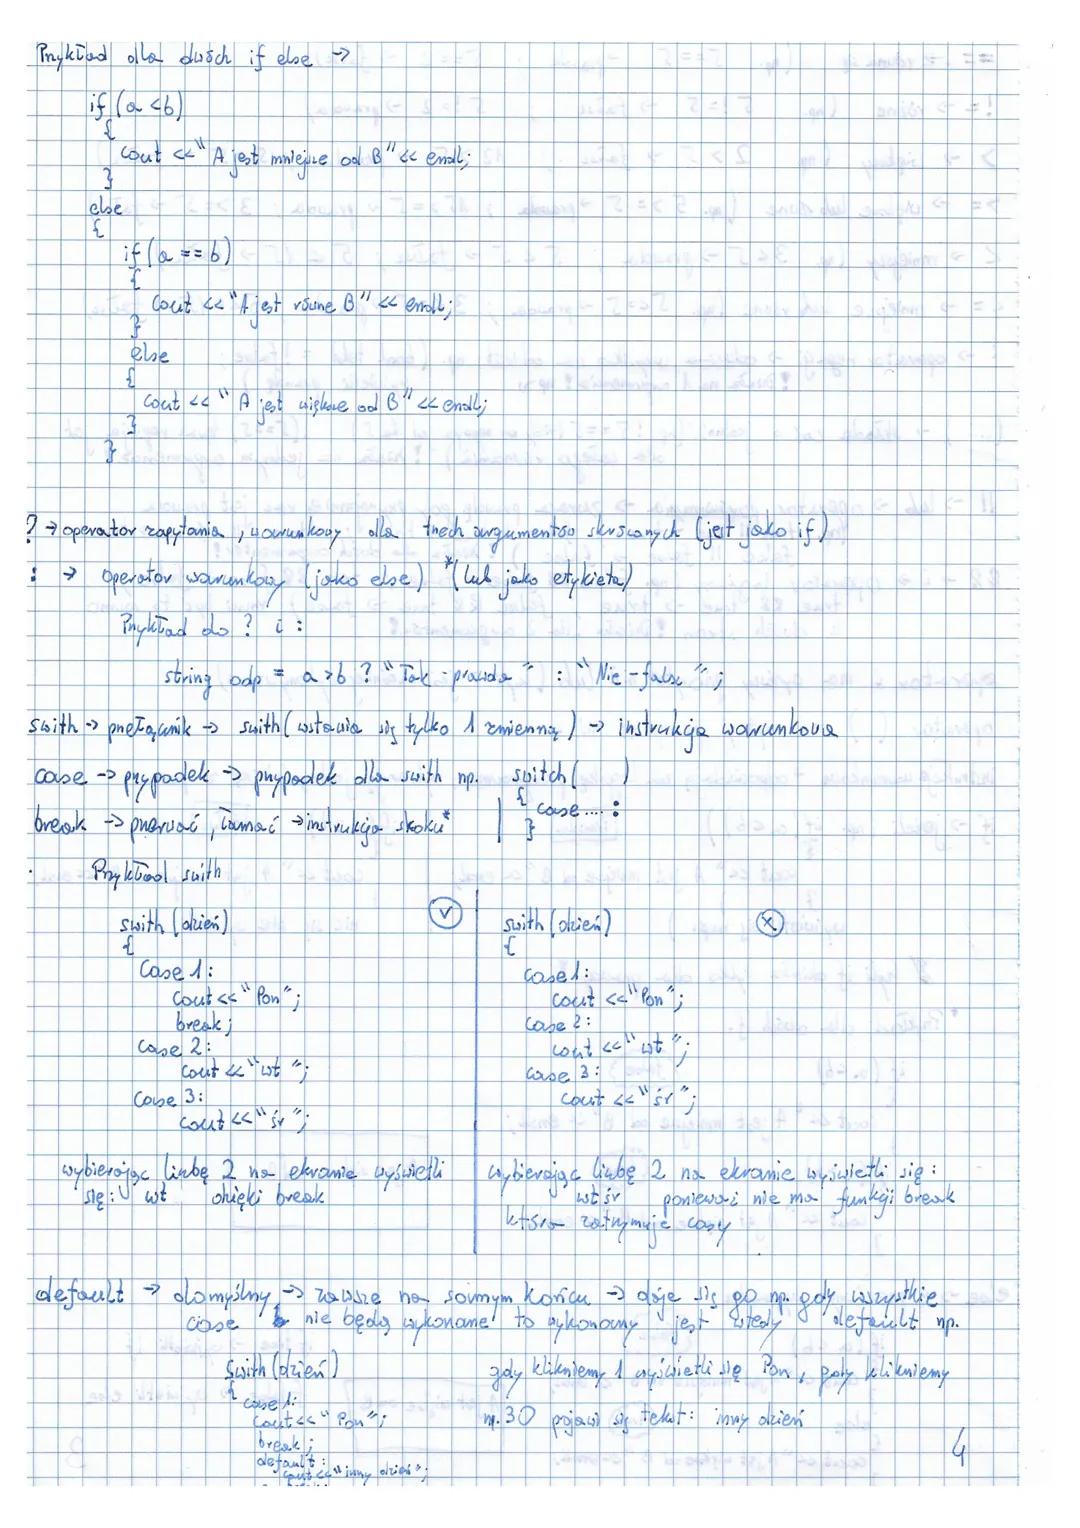 Przykład dla dwóch if else ->
if (a <b)
{
cout <<" A jest mniejsze od B" << endl;
}
else
{
if (a == b)
{
cout <<"A jest równe B" << endl;
}
else
{
cout << " A jest większe od B" << endl;
}
}
? -> operator zapytania, warunkowy dla trzech argumentów skróconych (jest jako if)
: -> operator warunkowy (jako else) *(lub jako etykieta)
Przykład do ? i :
string odp = a >b ? "Tak - prawda " : "Nie - false ";
swith -> przełącznik -> swith( wstawia się tylko 1 zmienną ) -> instrukcja warunkowa
case -> przypadek -> przypadek dla swith np. switch( )
{ case .... :
break -> przerwać, łamać -> instrukcja skoku* }
Przykład swith
swith (dzień) V
{
case 1:
cout << " Pon";
break;
case 2:
cout << "wt ";
case 3:
cout << "śr ";
wybierając liczbę 2 na ekranie wyświetli
się: wt dzięki break
swith (dzień) X
{
case 1:
cout <<"Pon";
case 2:
cout <<" wt ";
case 3:
cout << "śr ";
wybierając liczbę 2 na ekranie wyświetli się :
wt śr ponieważ nie ma funkcji break
która zatrzymuje casy
default -> domyślny -> zawsze na samym końcu -> daje się go np. gdy wszystkie
case nie będą wykonane to wykonany jest wtedy default np.
swith (dzień)
{
case 1:
cout << " Pon";
break;
default :
cout << " inny dzień ";
gdy klikniemy 1 wyświetli się Pon, gdy klikniemy
np. 30 pojawi się tekst: inny dzień
4